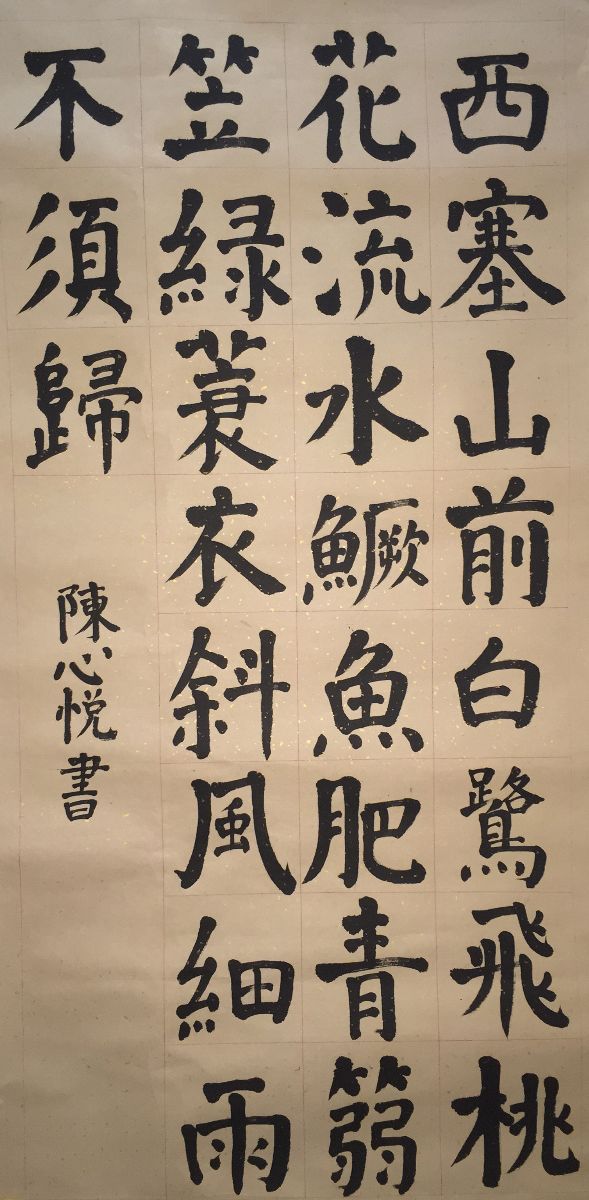 西塞山前白鷺飛桃
花流水鱖魚肥青篛
笠緑蓑衣斜風細雨
不須歸
陳心悦書